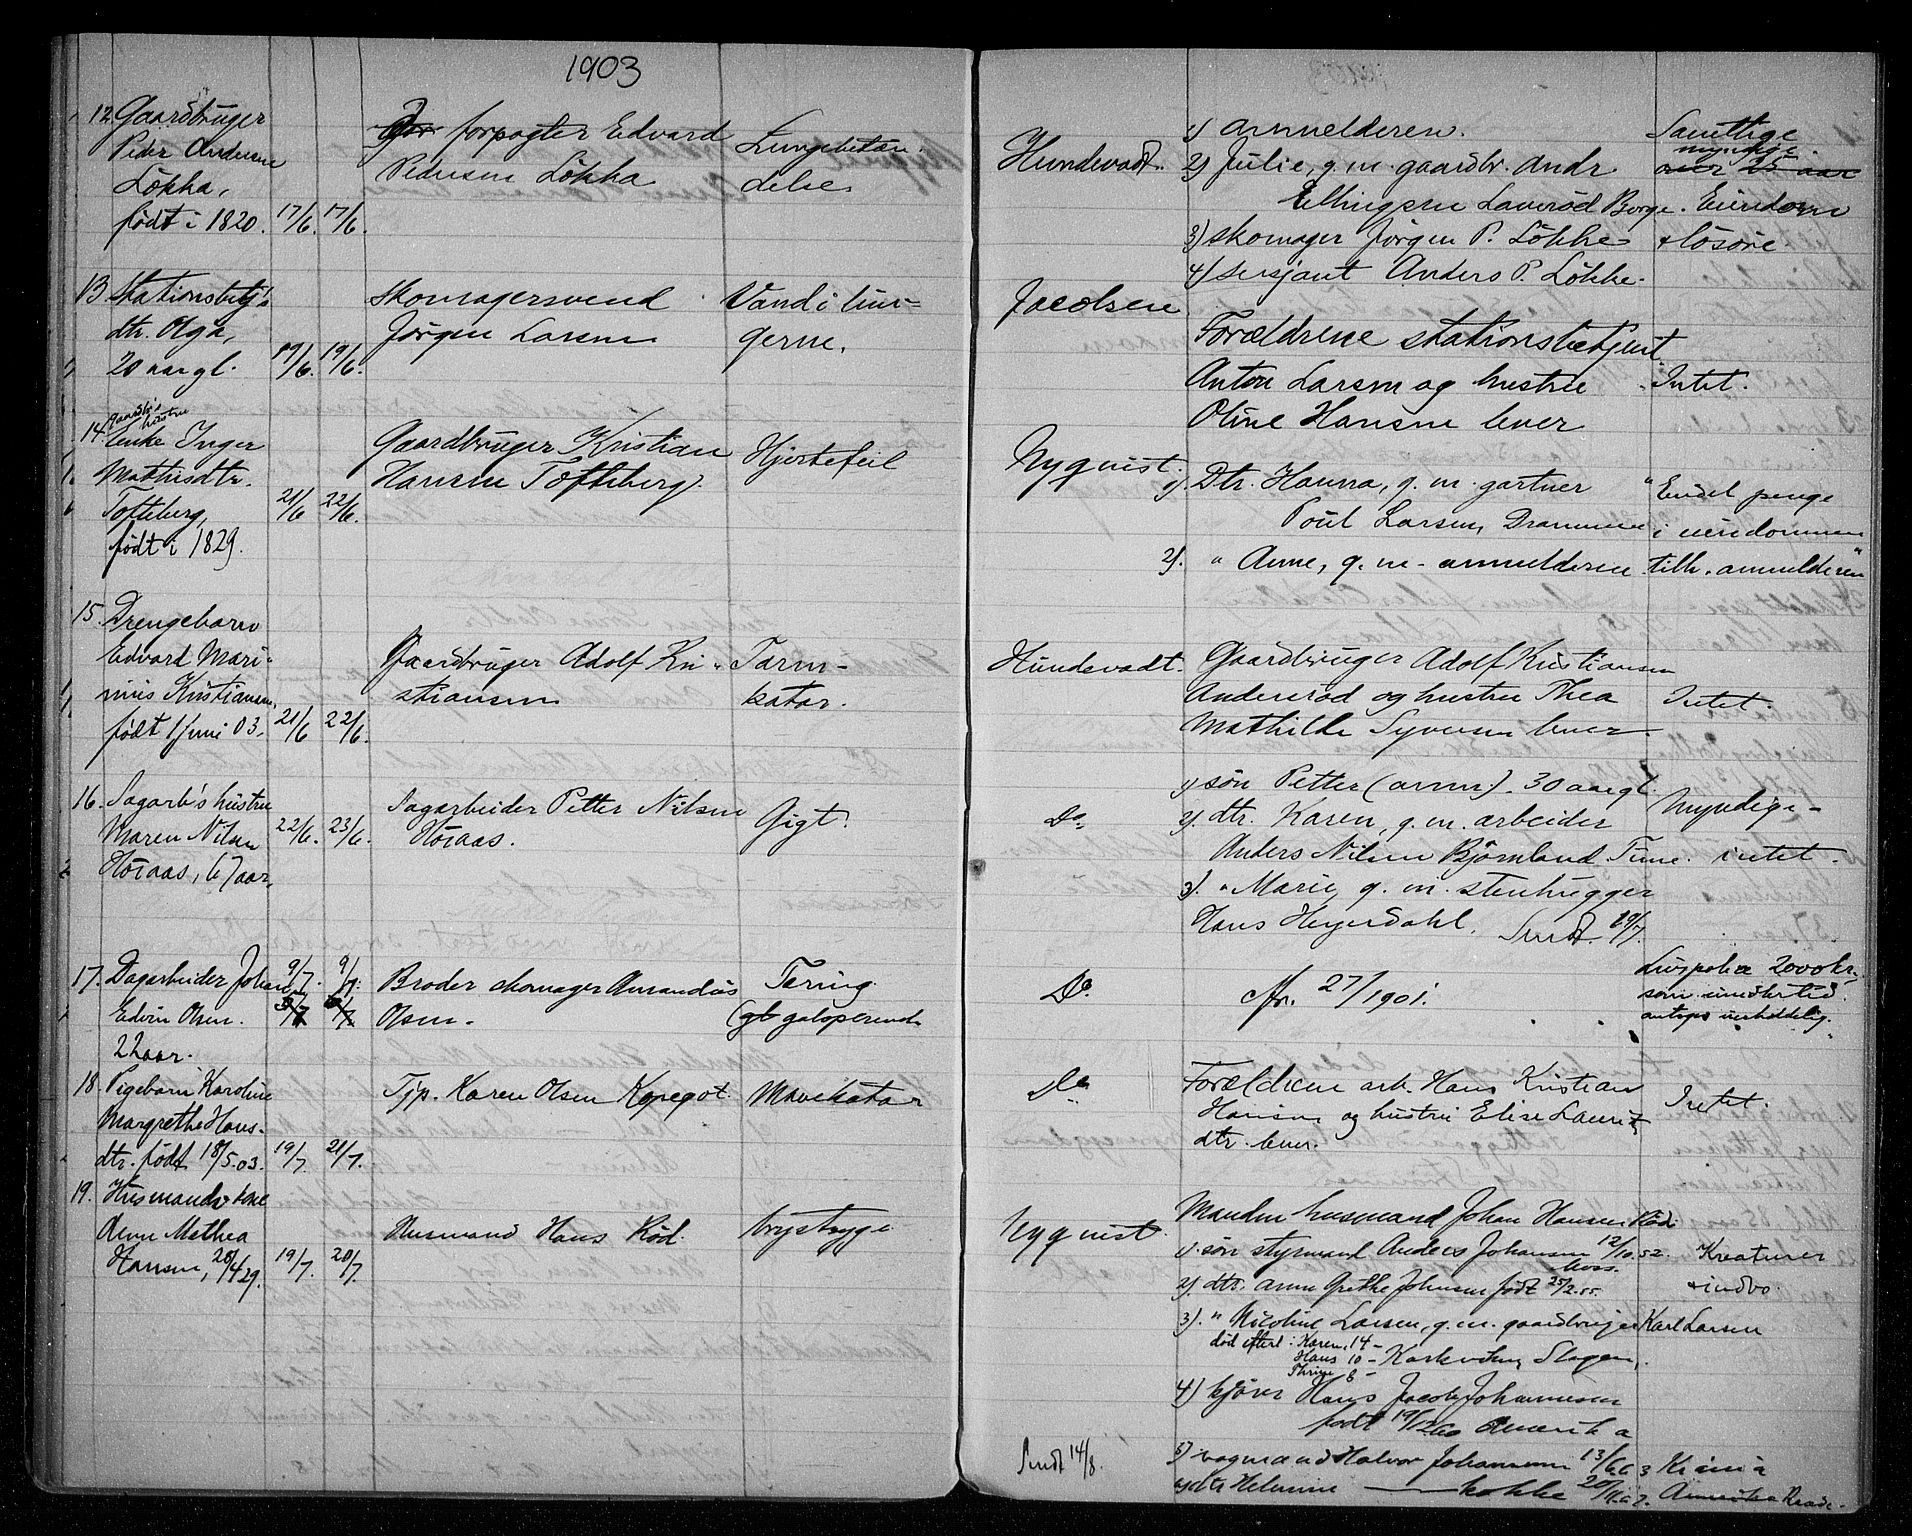 1903
12. Gaardbruger
Peder Andersen
Lökka,
födt i 1820. 17/6. 17/6.
forpagter Edvard
Pedersen Lökka
Lungebetæn-
delse
Hundevadt.
1) anmelderen.
2) Julie, g. m. gaardbr. Andr
Ellingsen Laveröd Borge.
3) skomager Jörgen P. Lökke
4) sersjant Anders P. Lökke.
Samtlige
myndige
over 25 aar
Eiendom
+ lösöre.
13. Stationsbetj's
dtr. Olga,
20 aar gl. 19/6. 19/6.
skomagersvend
Jörgen Larsen
Vand i lun-
gerne.
Jacobsen
Forældrene stationsbetjent
Anton Larsen og hustru
Oline Hansen lever
Intet.
14. gaardbr's hustru
Enke Inger
Mathisdtr.
Tofteberg,
födt i 1829. 21/6 22/6.
Gaardbruger Kristian
Hansen Tofteberg.
Hjertefeil
Nyquist.
1). Dtr. Hanna, g. m. gartner
Poul Larsen, Drammen
2). " Anne, g. m. anmelderen
"Endel penge
i eiendommen
tilh. anmelderen"
15. Drengebarn
Edvard Mari-
nius Kristiansen,
födt 1 juni 03. 21/6 22/6.
Gaardbruger Adolf Kri-
stiansen
Tarm-
katar.
Hundevadt.
Gaardbruger Adolf Kristiansen
Anderöd og hustru Thea
Mathilde Syversen lever
Intet.
16. Sagarb's hustru
Maren Nilsen
Höiaas, 67 aar, 22/6. 23/6.
Sagarbeider Petter Nilsen
Höiaas.
Gigt.
Do
1) sön Petter (anm). 30 aar gl.
2). dtr. Karen, g. m. arbeider
Anders Nilsen Björnland Tune.
3). " Marie, g. m. stenhugger
Hans Heyerdahl. Sendt. 29/7.
Myndige -
intet.
17. Dagarbeider Johan
Edvin Olsen.
22 aar. 9/7. 9/7.
Broder skomager Amandus
Olsen.
Tæring.
(gl galoperende
Do.
cfr. 27/1901.
Livspolice 2000 kr.
som imidlertid
antages uerholdelig.
18. Pigebarn Karoline
Margrethe Hans-
dtr. födt 18/5.03. 19/7. 21/7.
Tjp. Karen Olsen Kopegot.
Mavekatar
Do
Forældrene arb. Hans Kristian
Hansen og hustru Elise Laurits
dtr. lever.
Intet.
19. Husmands kone
Anne Mathea
Hansen, 28/4 29. 19/7. 20/7.
Husmand Hans Röd.
brystsyge
Nyquist.
Manden husmand Johan Hansen Röd
1). sön styrmand Anders Johansen 12/10.52.
2). dtr. Anne Grethe Johnsen födt 25/2.55.
3). " Nicoline Larsen, g. m. gaardbruger Karl Larsen
död efterl: Karen, 14 -
Hans 10 -
Thrine 8 -
Slagen.
4) kjører Hans Jacob Johannesen
födt 19/12 60 Amerika
5) vognmand Halvor Johannesen 13/6 63 Kr.ania
6) dtr Helmine 20/11.67. Amerika Raade.
Kreaturer
+ indbo.
Sendt 14/8.